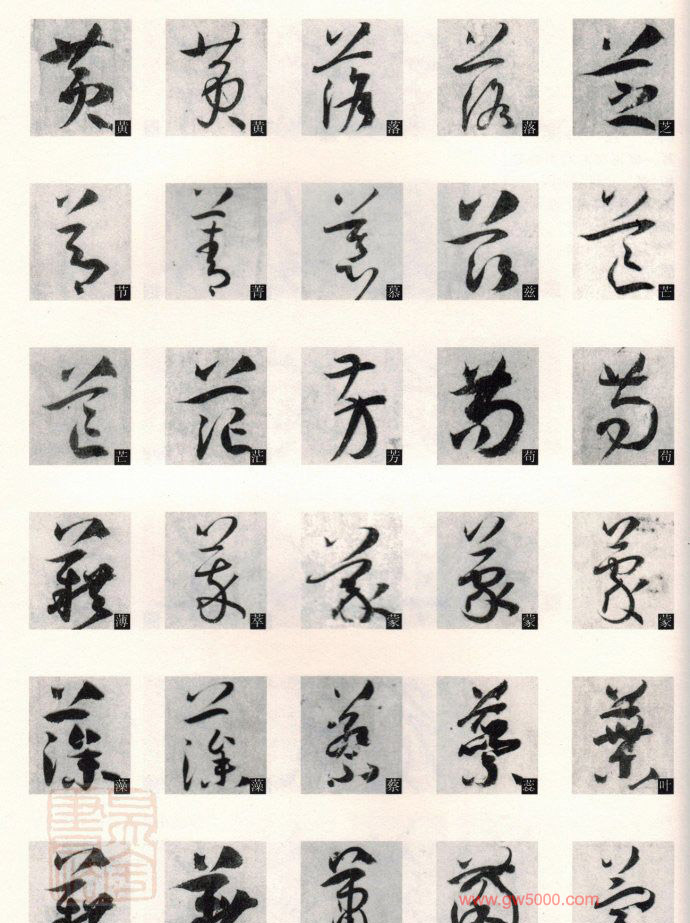 黄 黄 落 落 芝
节 菁 慕 兹 芒
芒 茫 芳 苟 苟
薄 萃 蒙 蒙 蒙
藻 藻 蔡 蕊 叶
www.gw5000.com